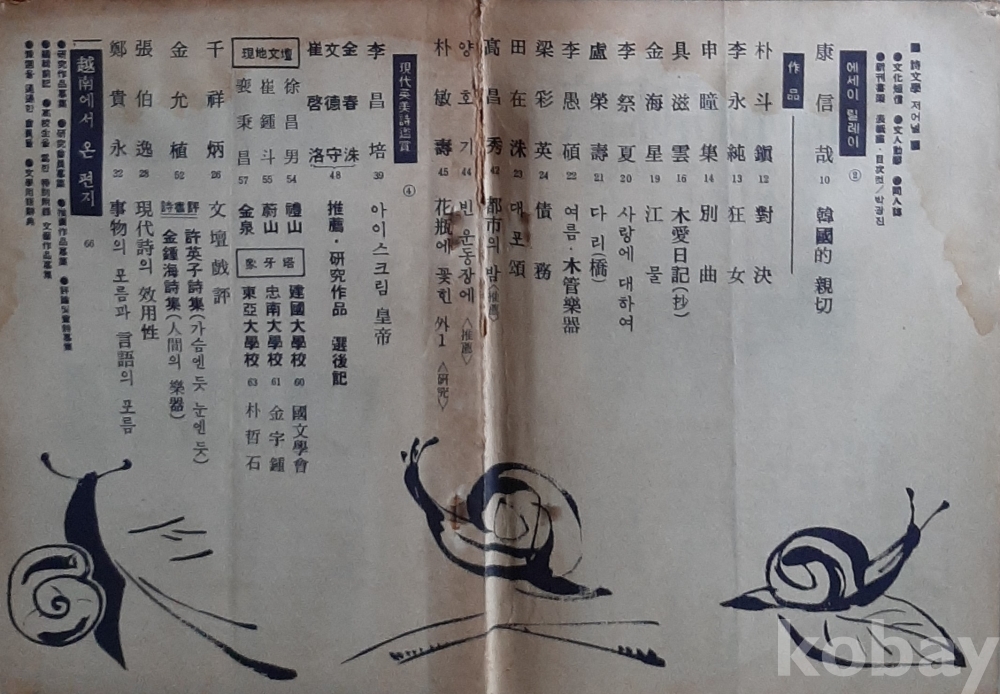 詩文學 저어널
●文化短信 ●文人動靜 ●同人誌
●新刊書評 表紙畵·目次컷/박광진
에세이 릴레이 ②
康信哉 10 韓國的 親切
作品
朴斗鎭 12 對決
李永純 13 狂女
申瞳集 14 別曲
具滋雲 16 木愛日記(抄)
金海星 19 江물
李祭夏 20 사랑에 대하여
盧榮壽 21 다리(橋)
李愚碩 22 여름·木管樂器
梁彩英 24 債務
田在洙 23 대포頌
高昌秀 42 都市의 밤<推薦>
양호기 44 빈 운동장에 <推薦>
朴敏壽 45 花瓶에 꽃힌 外1 <硏究>
現代英美詩鑑賞 ④
李昌培 39 아이스크림 皇帝
金春洙
文德守 48 推薦·硏究作品 選後記
崔啓洛
現地文壇
徐昌男 54 禮山
崔鍾斗 55 蔚山
裵秉昌 57 金泉
象牙塔
建國大學校 60 國文學會
忠南大學校 61 金宇鍾
東亞大學校 63 朴哲石
千祥炳 26 文壇戱評
金允植 52 詩書評 許英子詩集(가슴엔 듯 눈엔 듯)
金鍾海詩集(人間의 樂器)
張伯逸 28 現代詩의 效用性
鄭貴永 32 事物의 포름과 言語의 포름
越南에서 온 편지 66
●硏究作品募集 ●硏究會員募集 ●推薦作品募集
●編輯前記
kobay